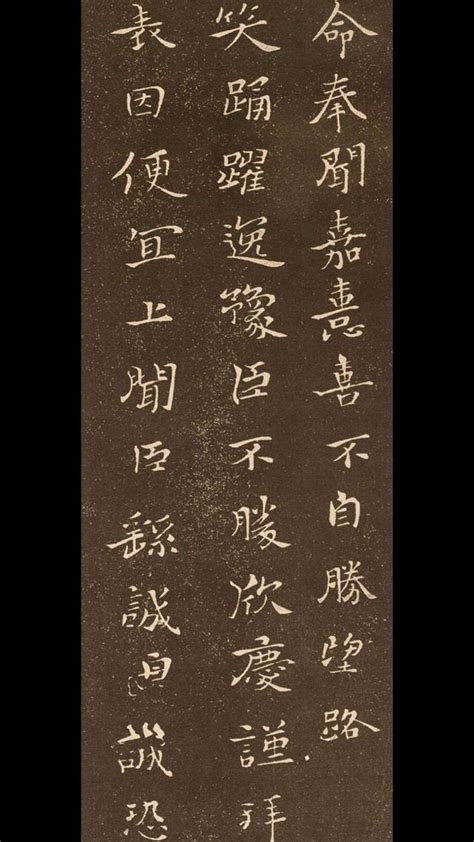 命奉聞嘉憙喜不自勝望路
笑踊躍逸豫臣不勝欣慶謹拜
表因便宜上聞臣繇誠皇誠恐